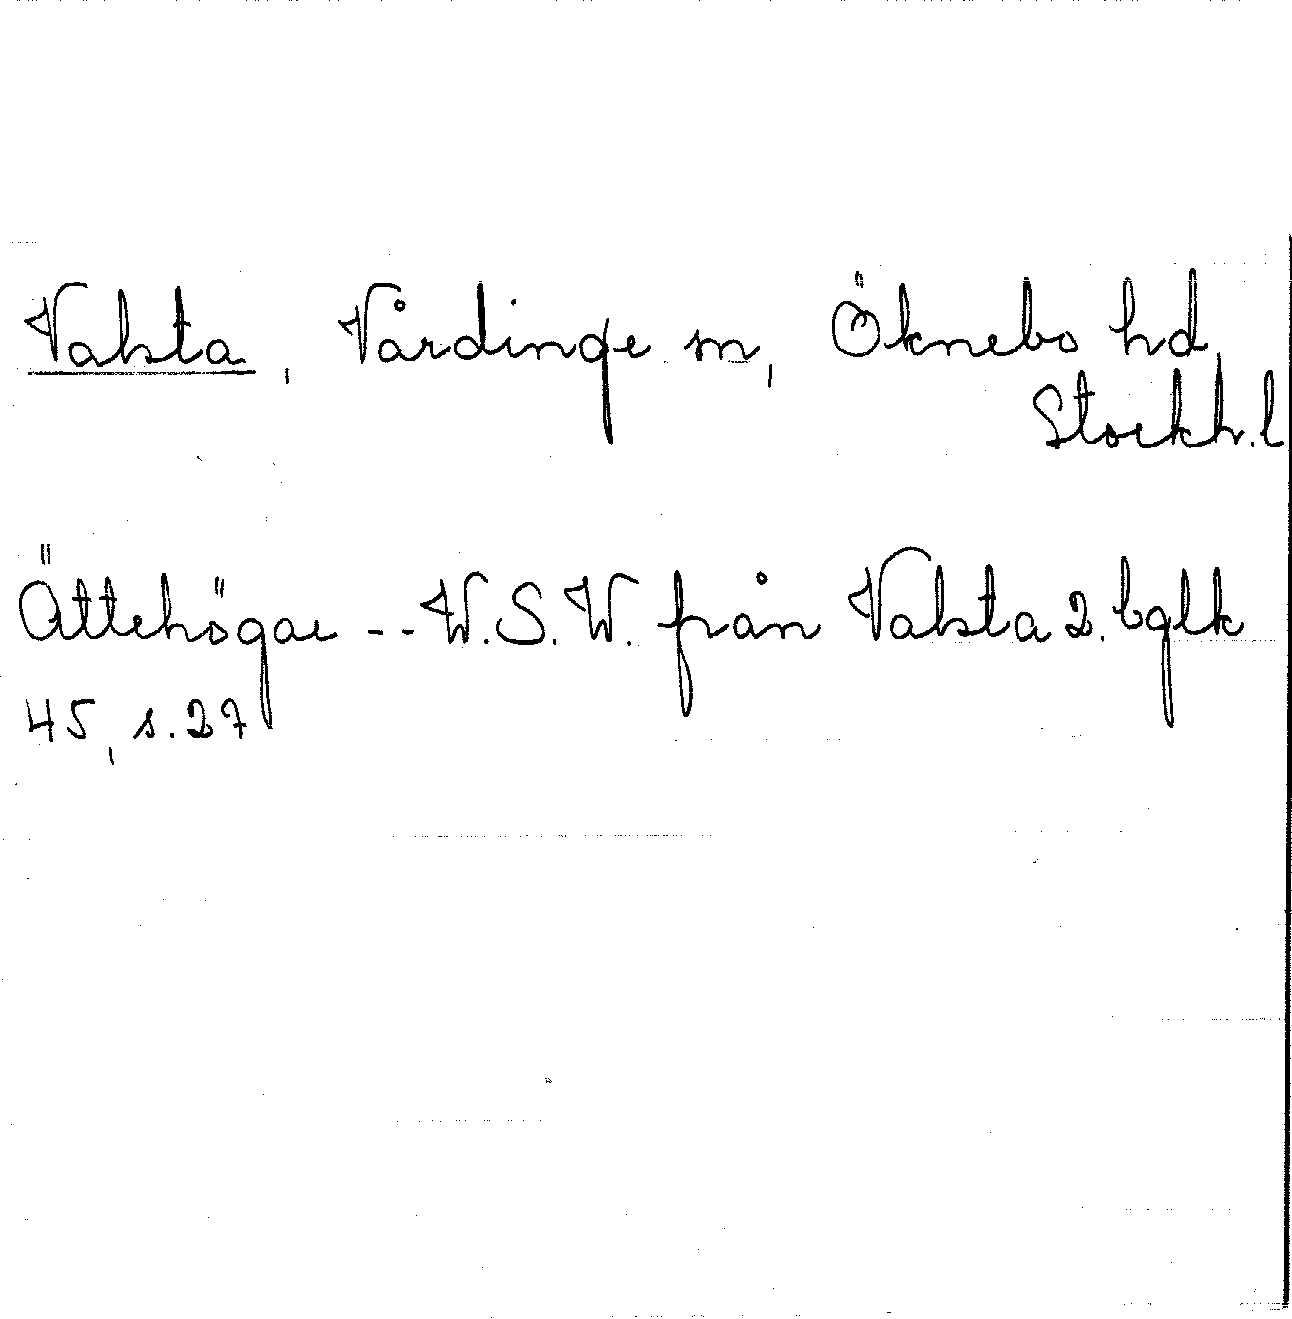 Vaksta, Vårdinge sn, Öknebo hd,
Stockh. l
Ättehögar -- W.S.W. från Vaksta 2. bglk
45, s. 27